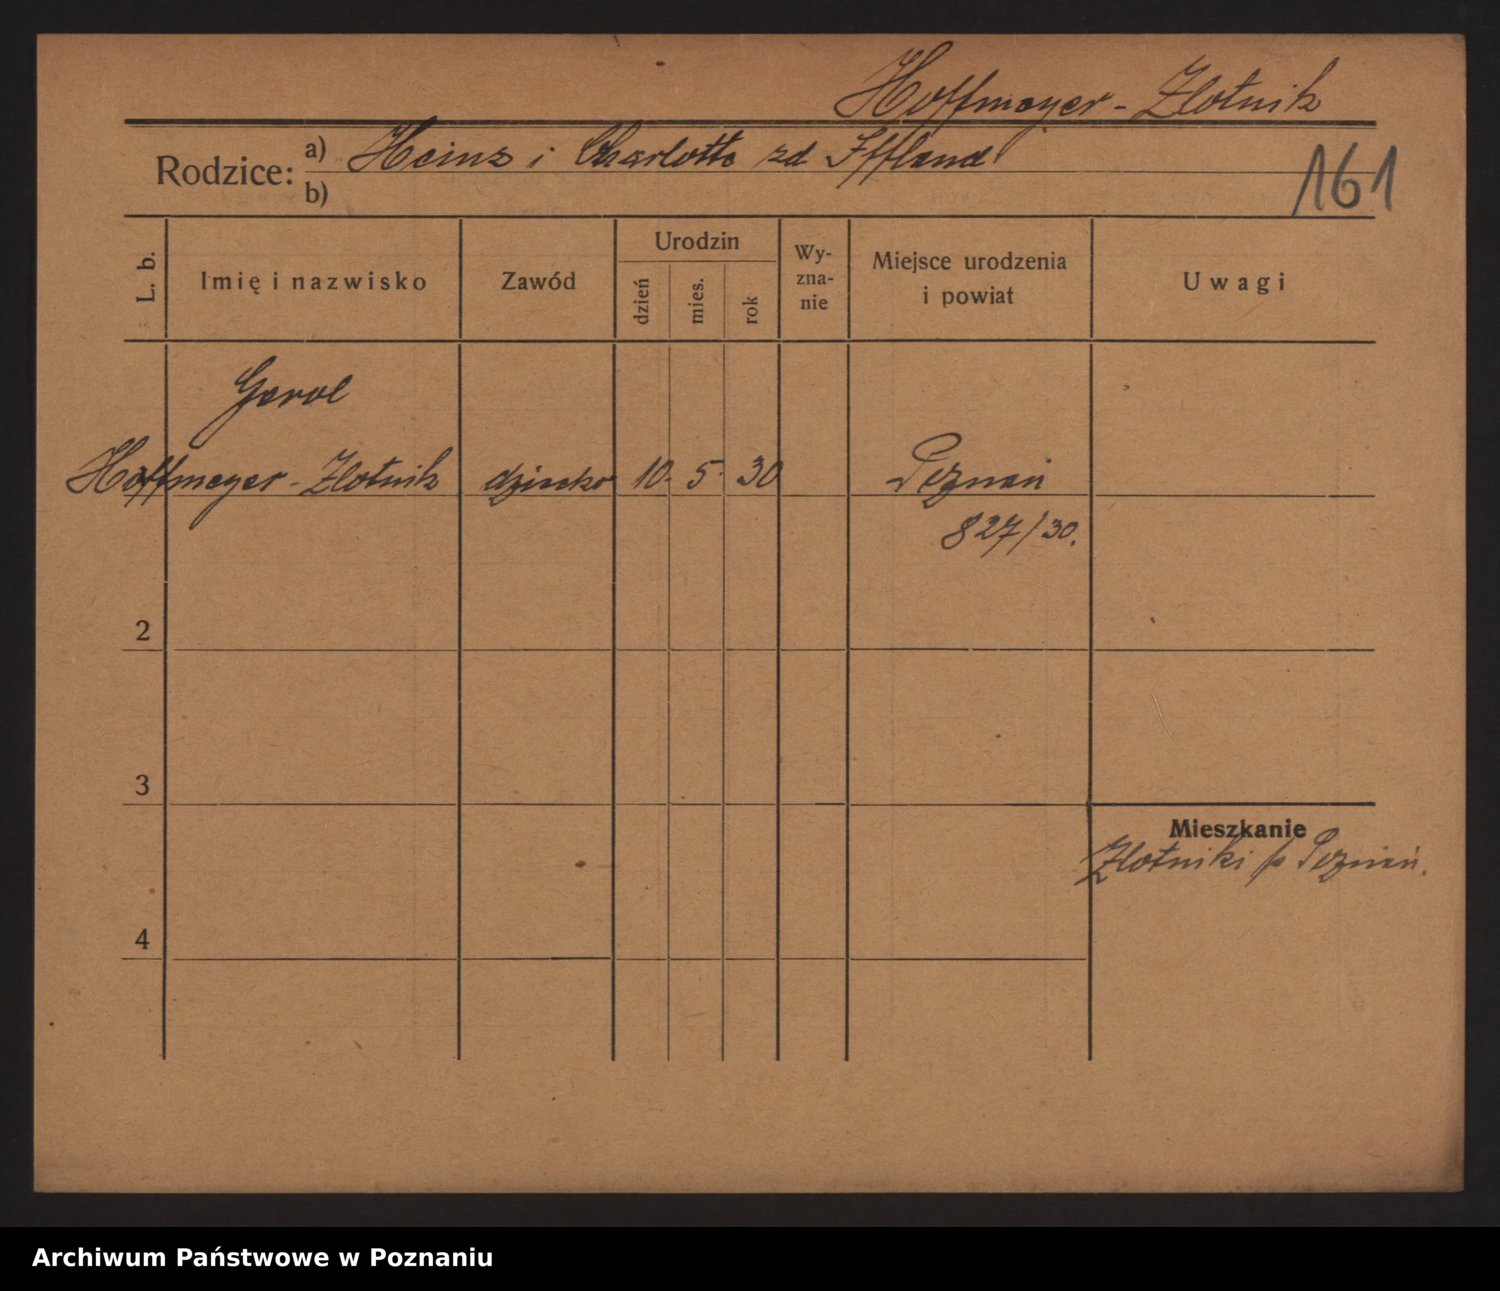 Hoffmeyer-Zlotnik
Rodzice: a) Heinz i Charlotte zd Iffland
b)
161
L. b.
Imię i nazwisko
Zawód
Urodzin
dzień
mies.
rok
Wy-
zna-
nie
Miejsce urodzenia
i powiat
Uwagi
Gerol
Hoffmeyer-Zlotnik dziecko 10. 5. 30 Poznań
827/30.
2
3
Mieszkanie
Zlotniki p Poznań.
4
Archiwum Państwowe w Poznaniu